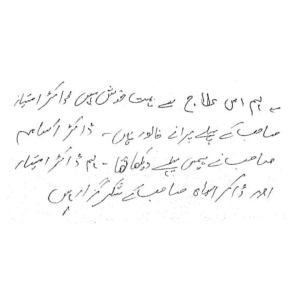 ہم اس علاج سے بہت خوش ہیں ڈاکٹر امتیاز
صاحب کے پہلے پرانے فالور ہیں - ڈاکٹر اسامہ
صاحب نے ہمیں پہلے دیکھا تھا - ہم ڈاکٹر امتیاز
اور ڈاکٹر اسامہ صاحب کے شکر گزار ہیں